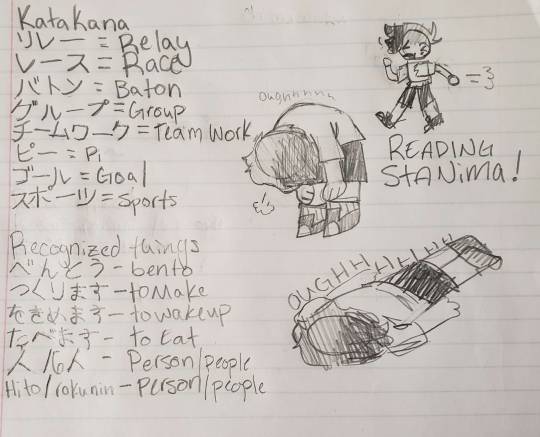 Katakana
リレー = Relay
レース = Race
バトン = Baton
グループ = Group
チームワーク = Team Work
ピー = Pi
ゴール = Goal
スポーツ = Sports
Recognized things
べんとう - bento
つくります - to Make
- to wakeup
たべます - to Eat
人 /6人 - Person/people
Hito/rokunin - person/people
READING
STANima!
OUGHHHHHHH